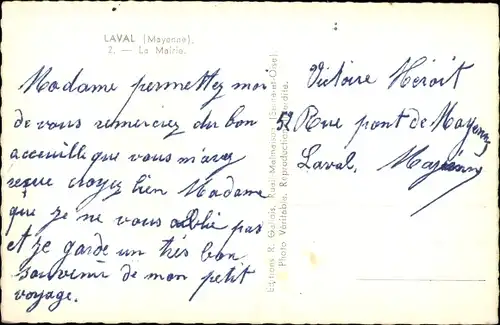 LAVAL (Mayenne).
2. — La Mairie.
Madame permettez moi
de vous remerciez du bon
acceuille que vous m'avez
reçue croyez bien Madame
que je ne vous oublie pas
et je garde un très bon
souvenir de mon petit
voyage.
Editions R. Malmaison (Seine-et-Oise)
Photo Véritable. Reproduction interdite.
Victoire Heroit
52 Rue pont de Mayenne
Laval. Mayenne